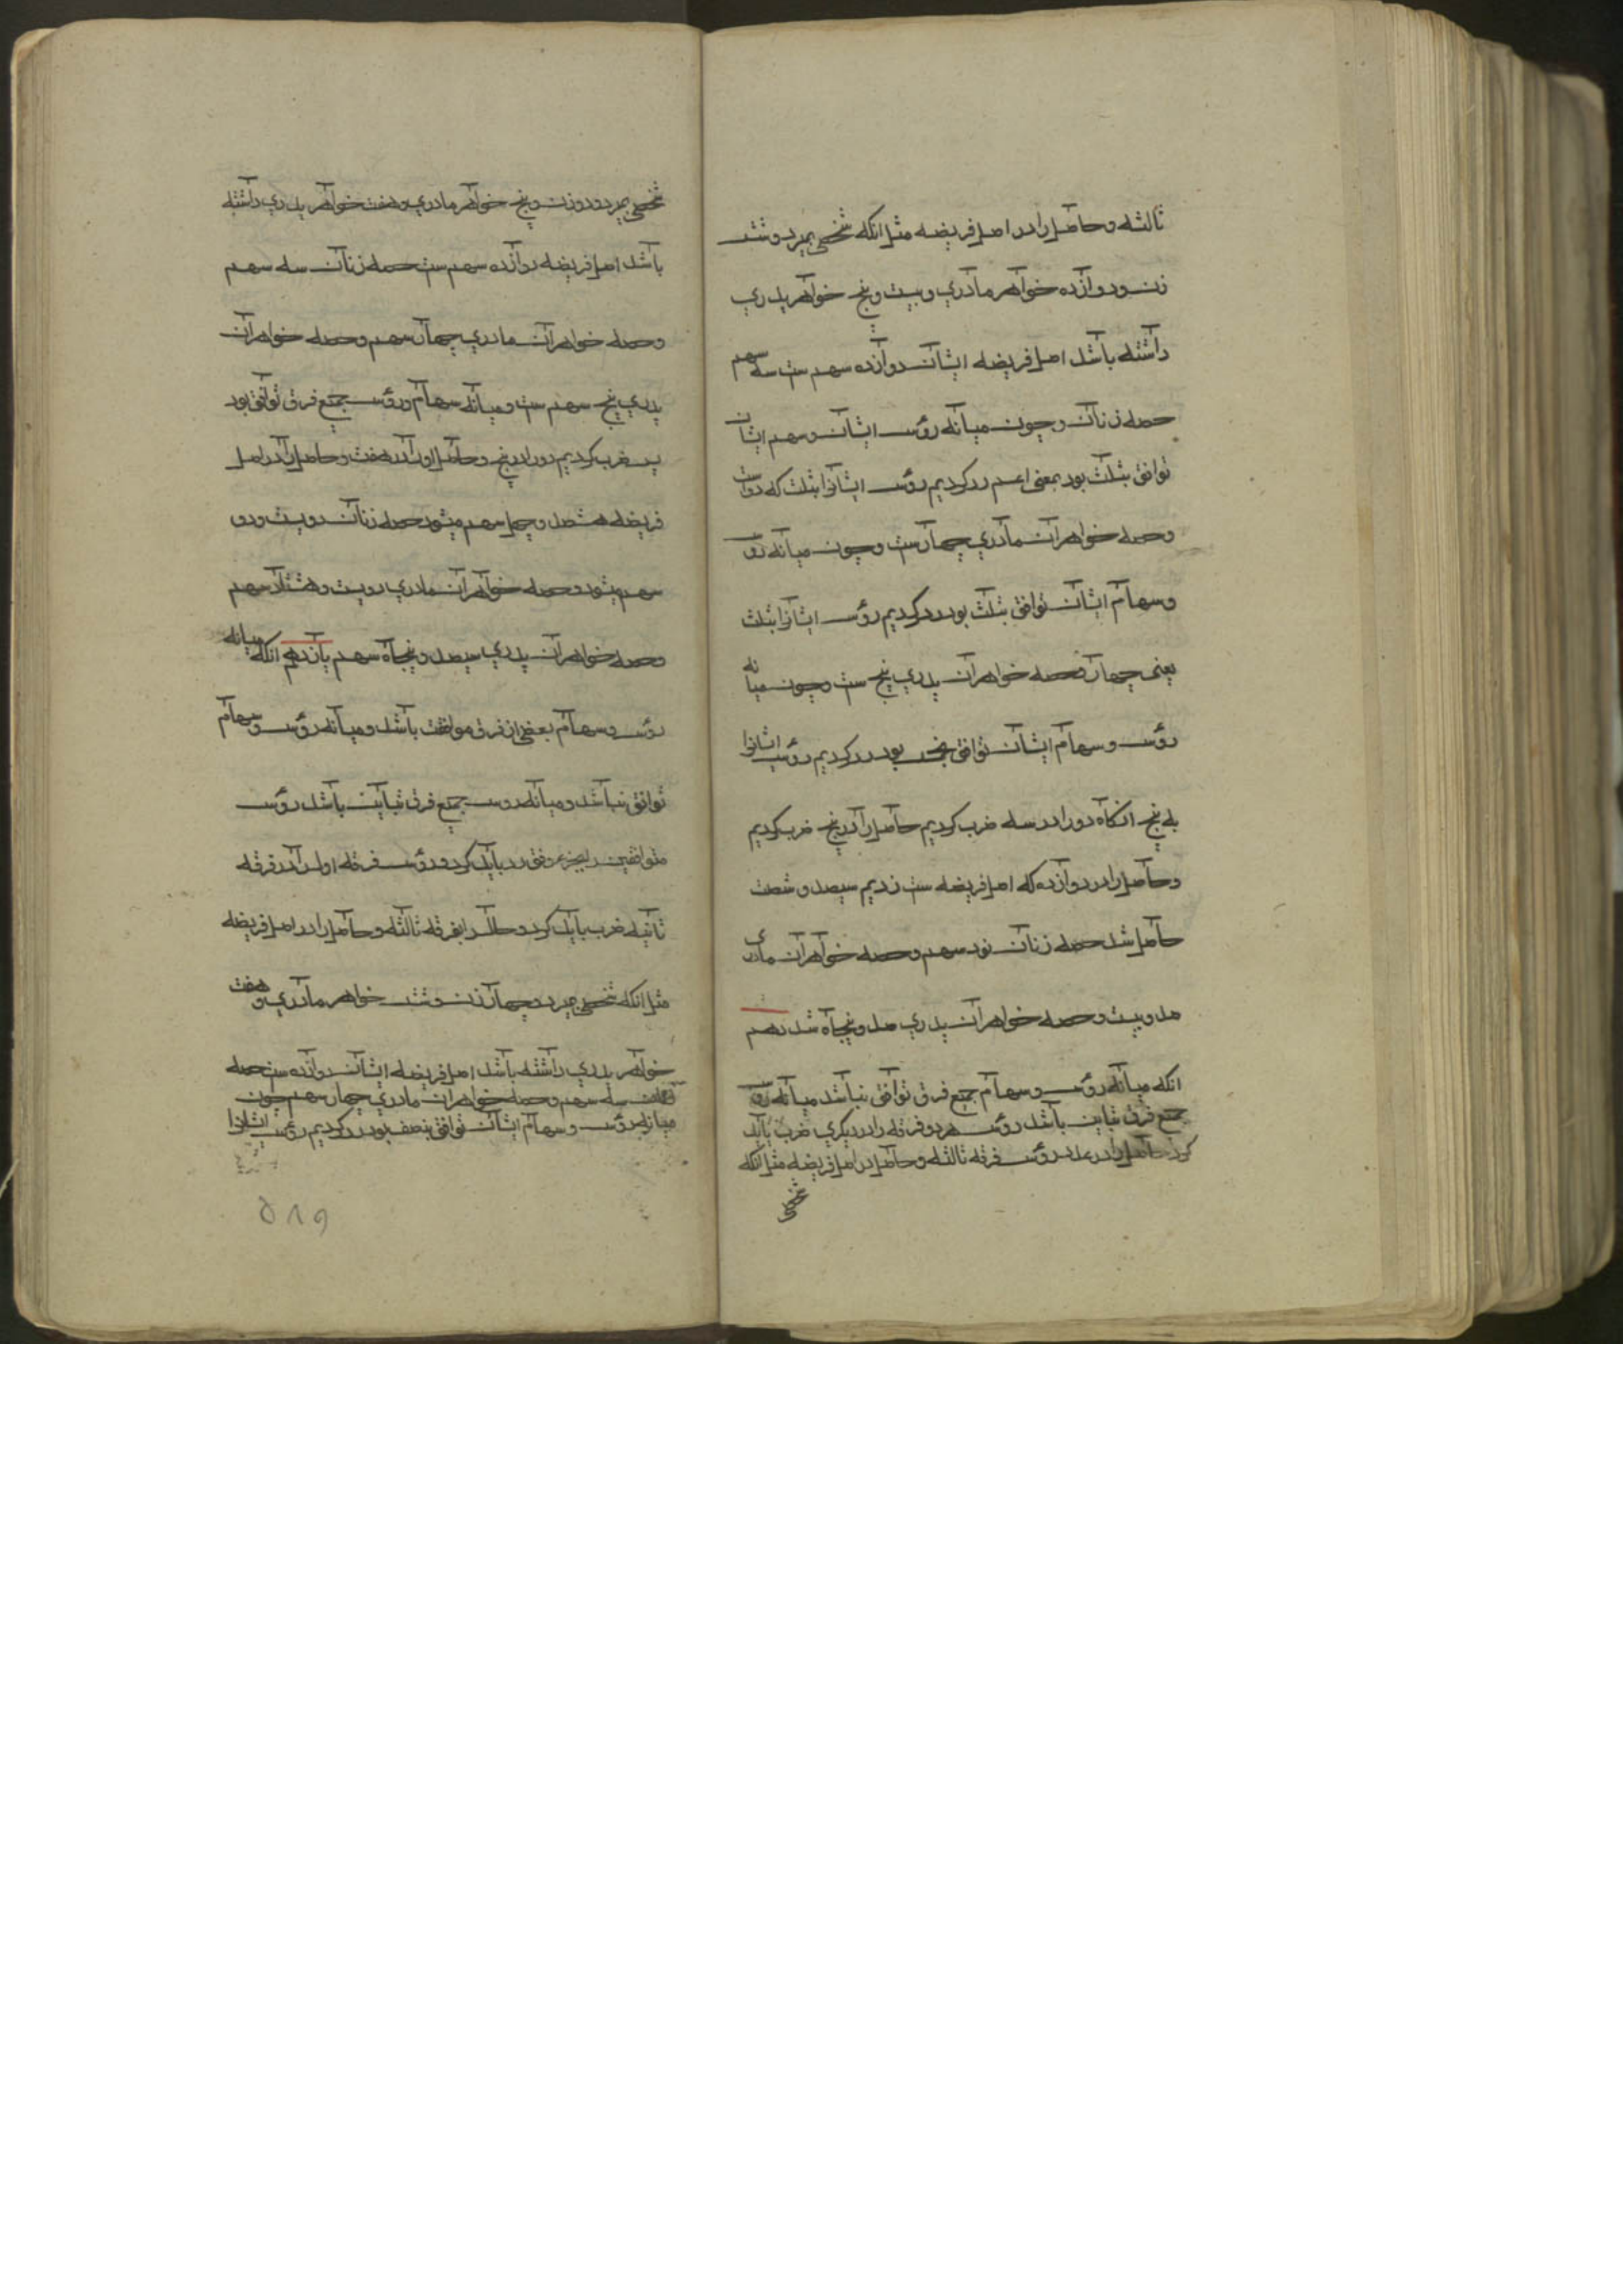 ثالثه و حاصل را در اصل فریضه مثل انکه شخصی بمیرد و شش
زن و دوازده خواهر مادری و بیست و پنج خواهر پدری
داشته باشد اصل فریضه ایشان دوازده سهم ست سه سهم
حصه زنان و چون میانه رؤس ایشان و سهم ایشان
توافق بثلث بود بمعنی اعم رد کردیم رؤس ایشانرا بثلث که دو است
و حصه خواهران مادری چهارست و چون میانه رؤس
و سهام ایشان توافق بثلث بود رد کردیم رؤس ایشانرا بثلث
یعنی چهار و حصه خواهران پدری پنج ست و چون میانه
رؤس و سهام ایشان توافق بخمس بود رد کردیم رؤس ایشانرا
به پنج انکاه دو را در سه ضرب کردیم حاصل را در پنج ضرب کردیم
و حاصل را در دوازده که اصل فریضه ست زدیم سیصد و شصت
حاصل شد حصه زنان نود سهم و حصه خواهران مادری
صد و بیست و حصه خواهران پدری صد و پنجاه شد دهم
انکه میانه رؤس و سهام جمع فرق توافق نباشد میانه رؤس
جمع فرق تباین باشد رؤس هر دو فرقه را در دیکری ضرب باید
کرد حاصل را در عدد رؤس فرقه ثالثه و حاصل در اصل فریضه مثل انکه
شخصی
شخصی بمیرد و دو زن و پنج خواهر مادری و هفت خواهر پدری داشته
باشد اصل فریضه دوازده سهم ست حصه زنان سه سهم
و حصه خواهران مادری چهار سهم و حصه خواهران
پدری پنج سهم ست و میانه سهام و رؤس جمع فرق توافق بود
پس ضرب کردیم دو را در پنج و حاصل اورا در هفت و حاصل را در اصل
فریضه هشصد و چهل سهم میشود حصه زنان دویست و ده
سهم میشود و حصه خواهران مادری دویست و هشتاد سهم
و حصه خواهران پدری سیصد و پنجاه سهم یازدهم انکه میانه
رؤس و سهام بعضی از فرق موافقت باشد و میانه رؤس و سهام
توافق نباشد و میانه رؤس جمع فرق تباین باشد رؤس
متوافقین را بجزء وفق رد باید کرد و رؤس فرقه اول را در فرقه
ثانیه ضرب باید کرد و حاصل را بفرقه ثالثه و حاصل را در اصل فریضه
مثل انکه شخصی بمیرد و چهار زن و شش خواهر مادری و هفت
خواهر پدری داشته باشد اصل فریضه ایشان دوازده ست حصه
زنان سه سهم و حصه خواهران مادری چهار سهم چون
میانه رؤس و سهام ایشان توافق بنصف بود رد کردیم رؤس ایشانرا
۵۸۹